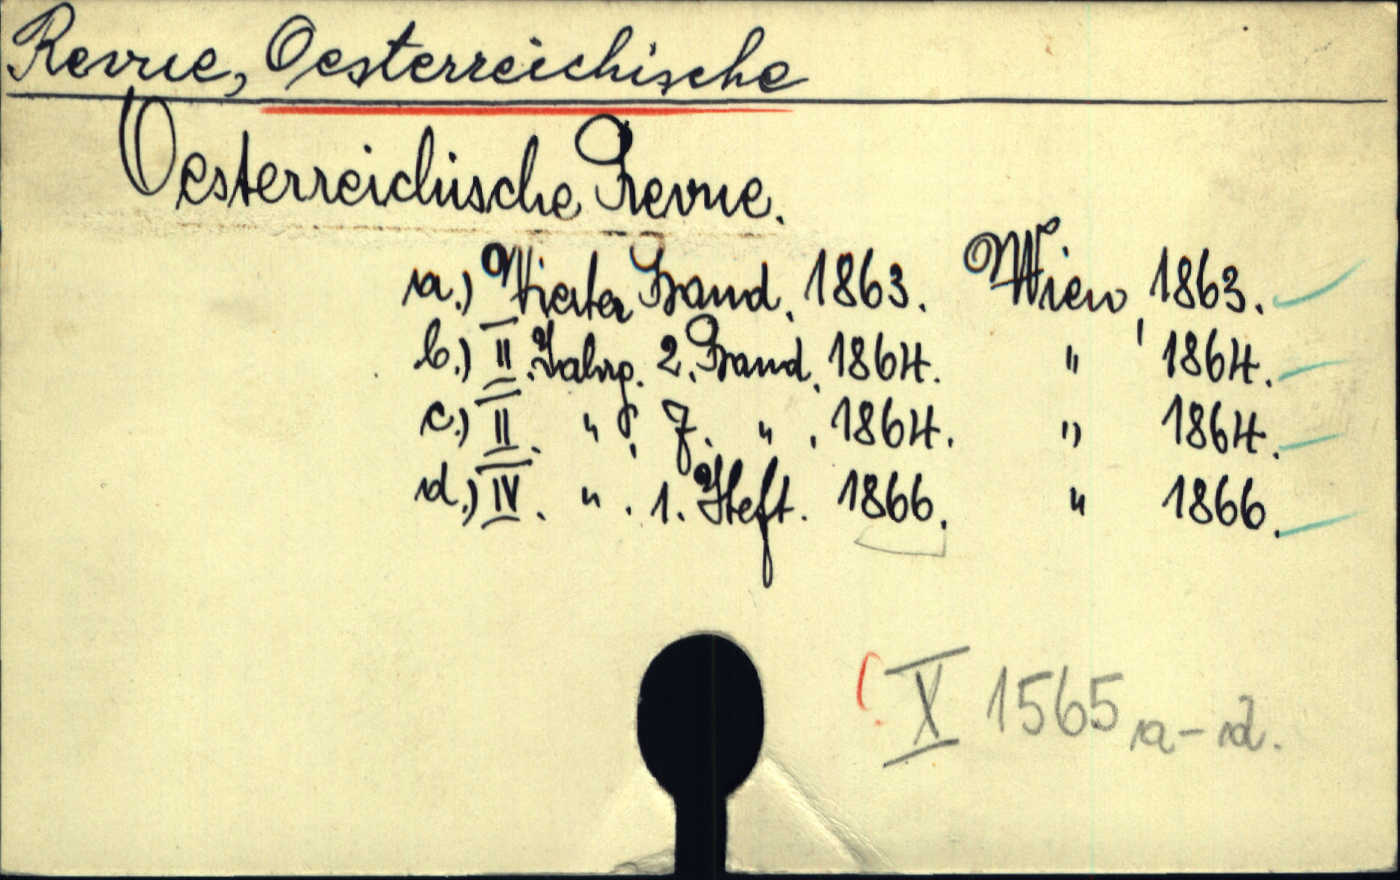 Revue, Oesterreichische
Oesterreichische Revue.
a.) Vierter Band. 1863. Wien, 1863.
b.) II. Jahrg. 2. Band. 1864. " 1864.
c.) II. " . 7. " . 1864. " 1864.
d.) IV. " . 1. Heft. 1866. " 1866.
X 1565 a-d.